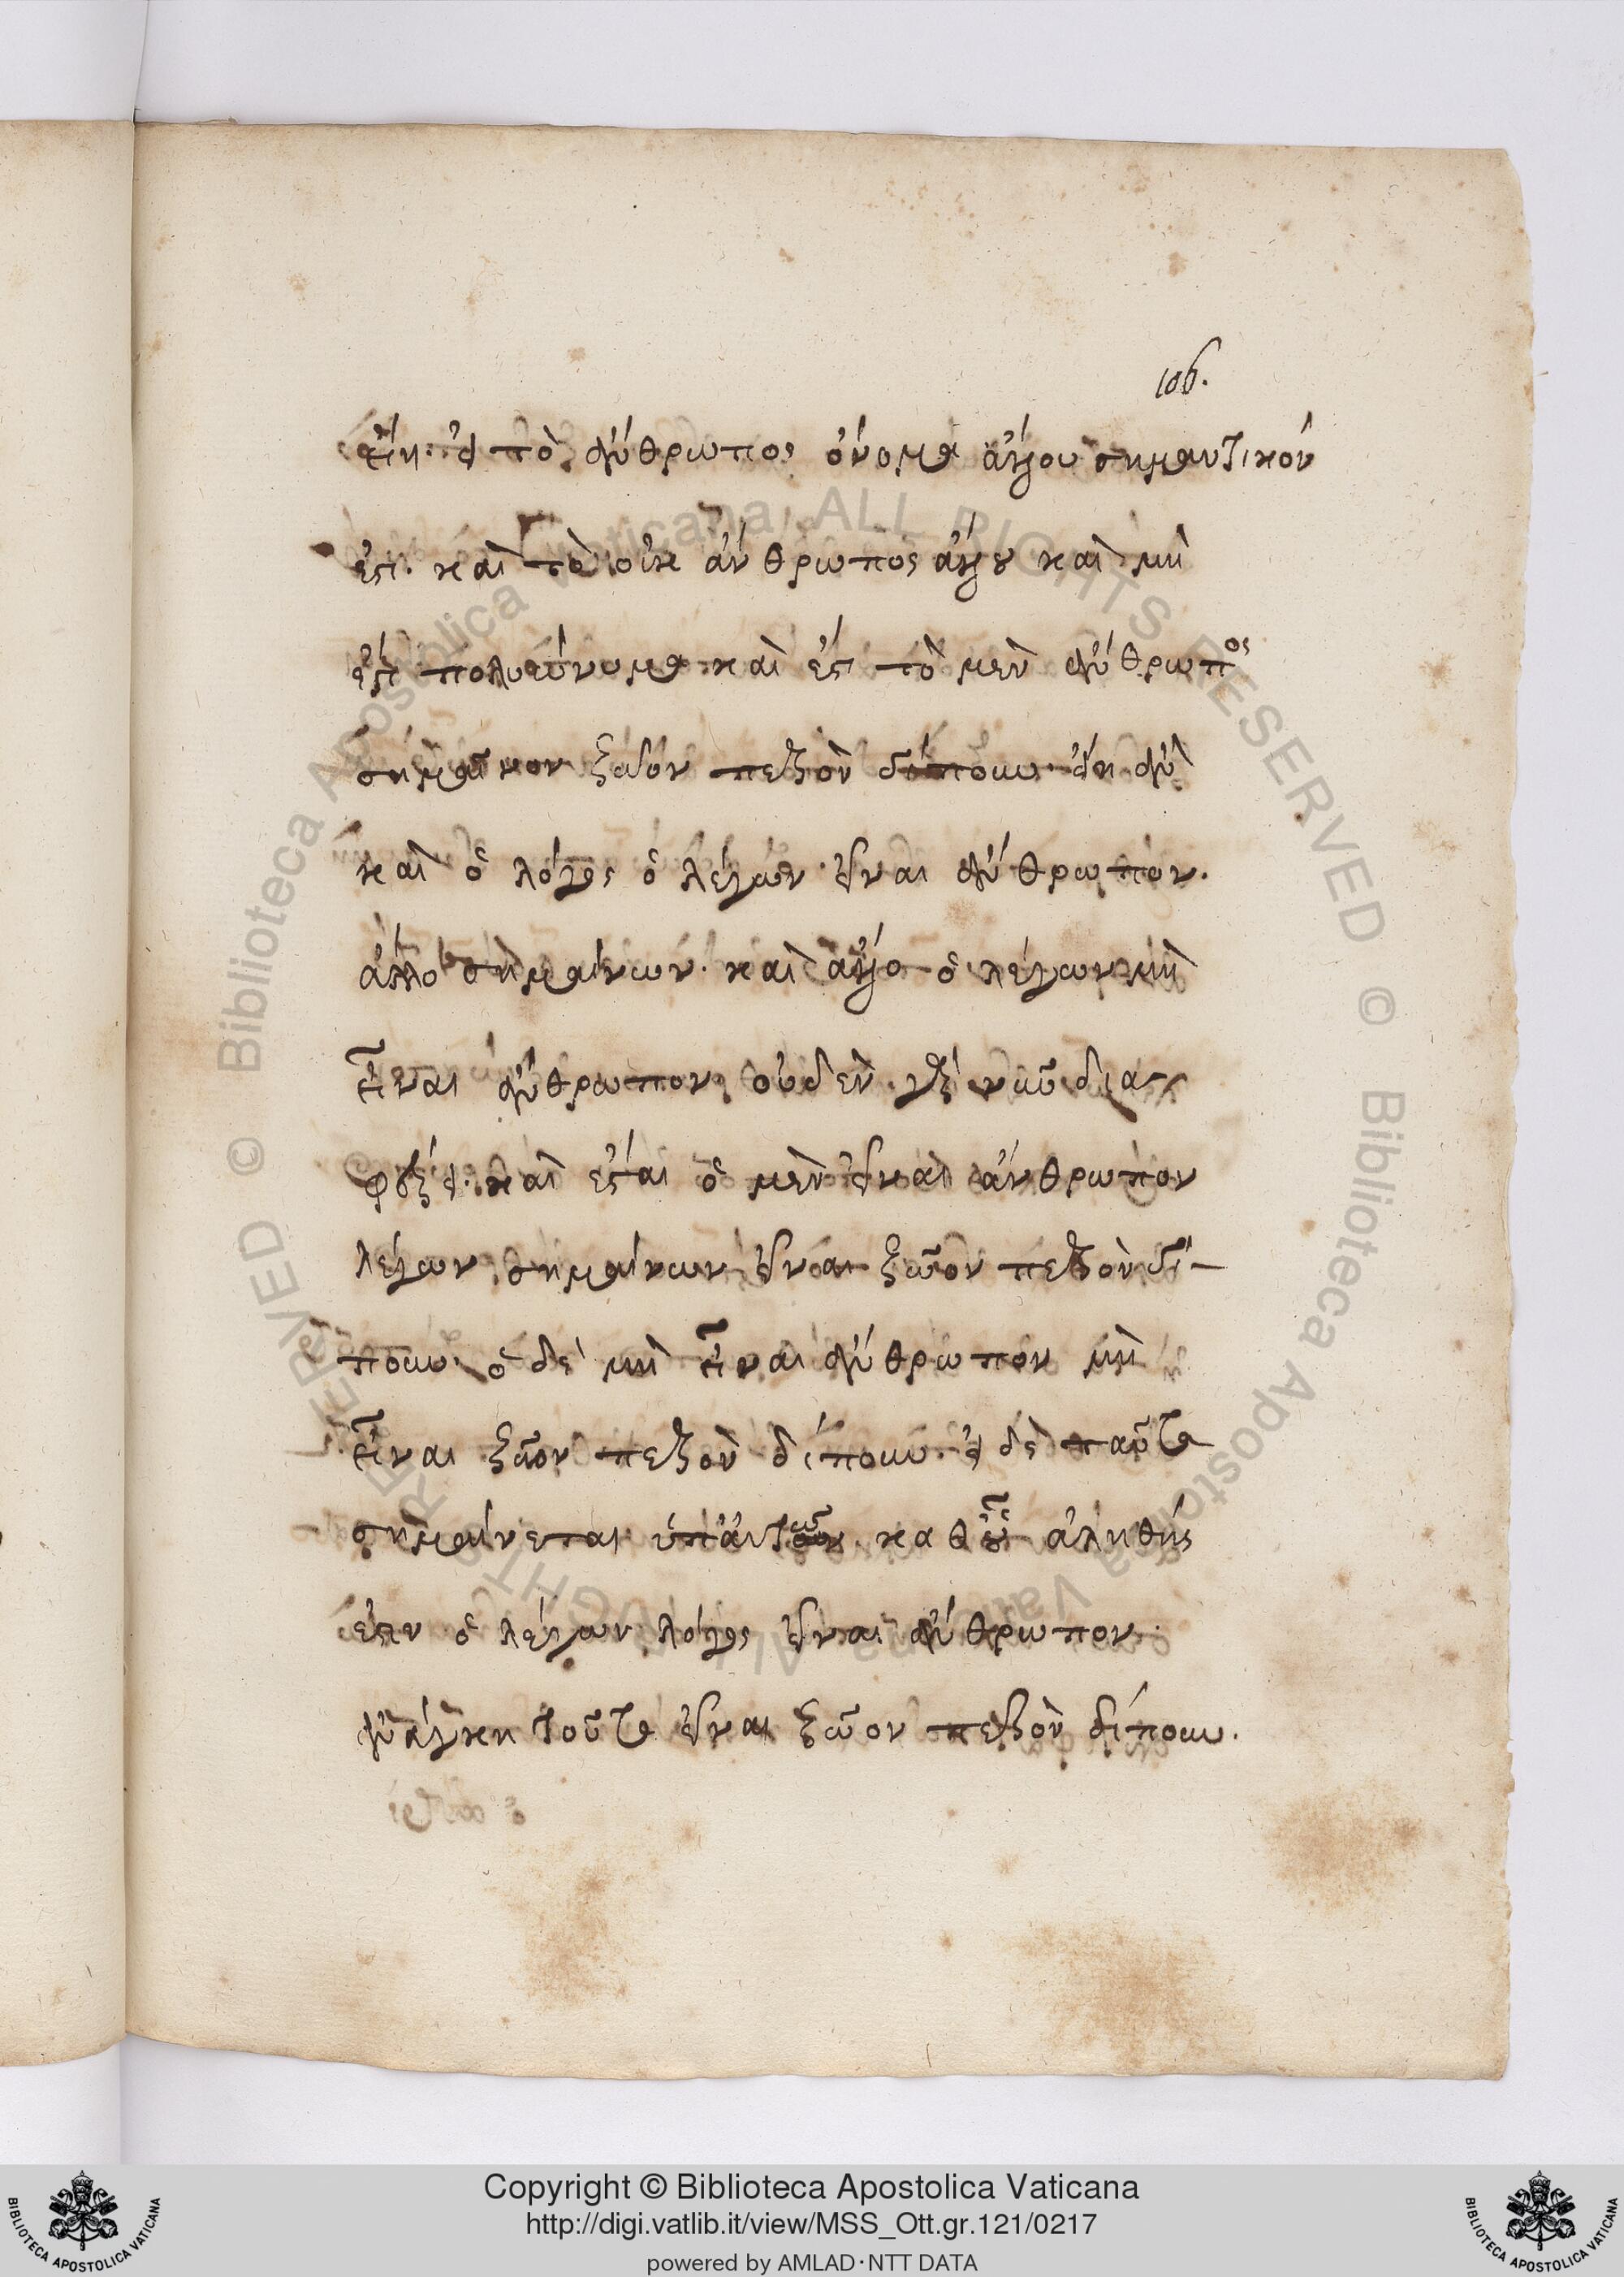 106.
εἴη. εἰ τὸ ἄνθρωπος ὄνομα ἄλλου σημαντικόν
ἐστι. καὶ τὸ οὐκ ἄνθρωπος ἄλλου καὶ μή
ἐστι πολυώνυμα καὶ ἔστι τὸ μὲν ἄνθρωπος
σημαῖνον ζῶον πεζὸν δίπουν. εἴη ἂν
καὶ ὁ λόγος ὁ λέγων εἶναι ἄνθρωπον.
ἄλλο σημαίνων. καὶ ἄλλο ὁ λέγων μὴ
εἶναι ἄνθρωπον, οὐδὲν γὰρ διας
καὶ ἔσται ὁ μὲν εἶναι ἄνθρωπον
λέγων σημαίνων εἶναι ζῶον πεζὸν δί-
πουν ὁ δὲ μὴ εἶναι ἄνθρωπον μὴ
εἶναι ζῶον πεζὸν δίπουν. εἰ δὲ ταῦτα
σημαίνεται ὑπ' αὐτῶν. καθ' οὗ ἀληθής
ἐστιν ὁ λέγων λόγος εἶναι ἄνθρωπον.
ἀνάγκη τοῦτο εἶναι ζῶον πεζὸν δίπουν.
Copyright © Biblioteca Apostolica Vaticana
http://digi.vatlib.it/view/MSS_Ott.gr.121/0217
powered by AMLAD·NTT DATA
BIBLIOTECA APOSTOLICA VATICANA
BIBLIOTECA APOSTOLICA VATICANA
© Biblioteca Apostolica Vaticana ALL RIGHTS RESERVED
© Biblioteca Apostolica Vaticana ALL RIGHTS RESERVED